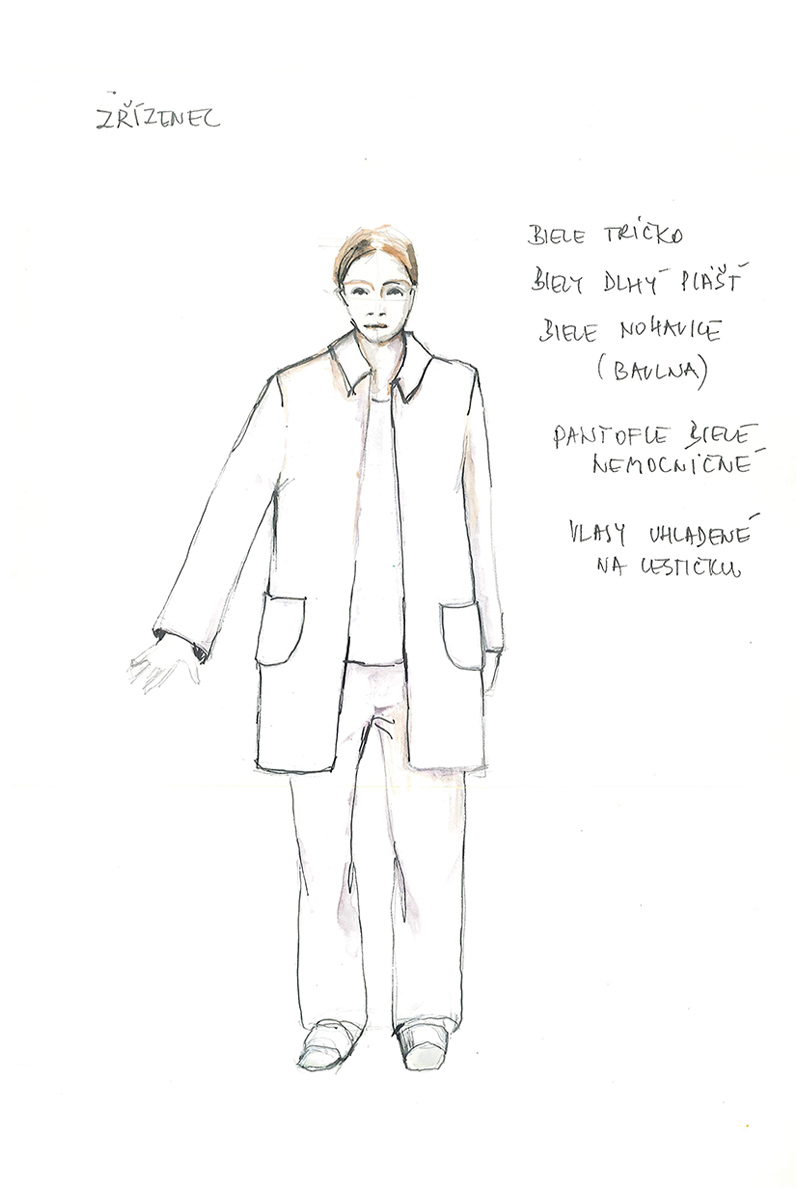 ZŘÍZENEC
BIELE TRIČKO
BIELY DLHÝ PLÁŠŤ
BIELE NOHAVICE
(BAVLNA)
PANTOFLE BIELE
NEMOCNIČNÉ
VLASY UHLADENÉ
NA CESTIČKU